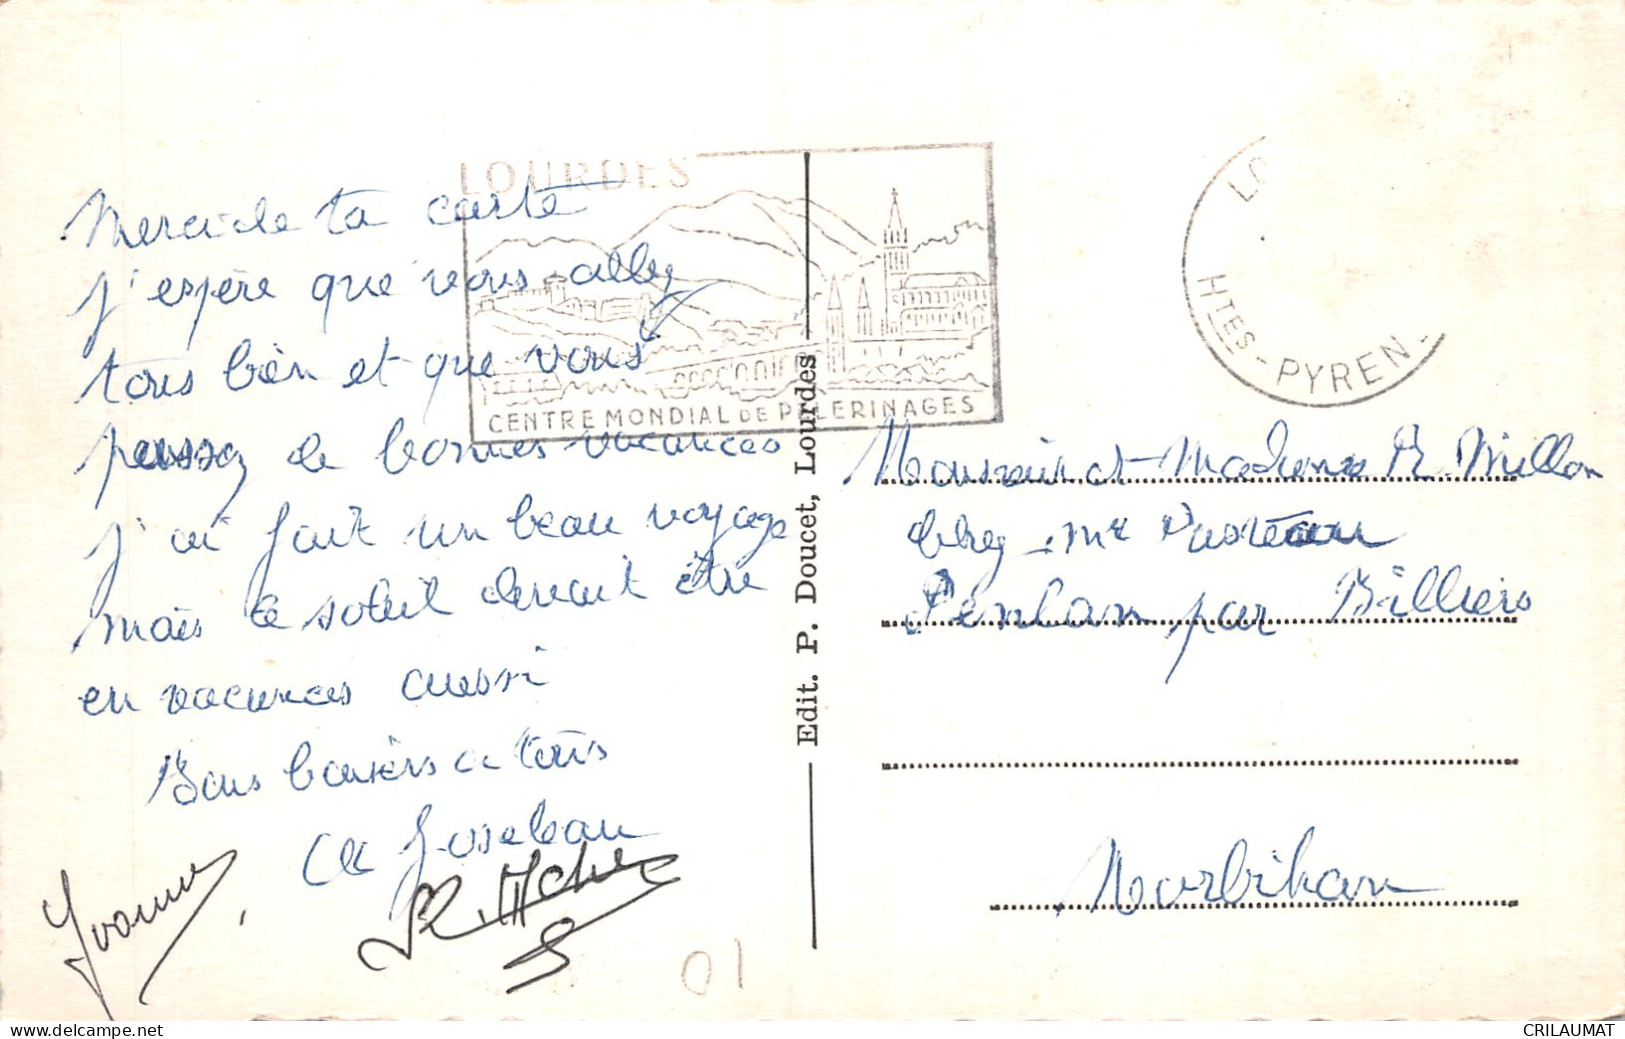 LOURDES
CENTRE MONDIAL DE PELERINAGES
HTES - PYREN.
Merci de ta carte
j'espère que vous allez
tous bien et que vous
passez de bonnes vacances
j'ai fait un beau voyage
mais le soleil devait être
en vacances aussi
Bons baisers a tous
Yvonne
Edit. P. Doucet, Lourdes
Monsieur et Madame R. Millon
chez Mr
Penlan par Billiers
Morbihan
01
www.delcampe.net
CRILAUMAT